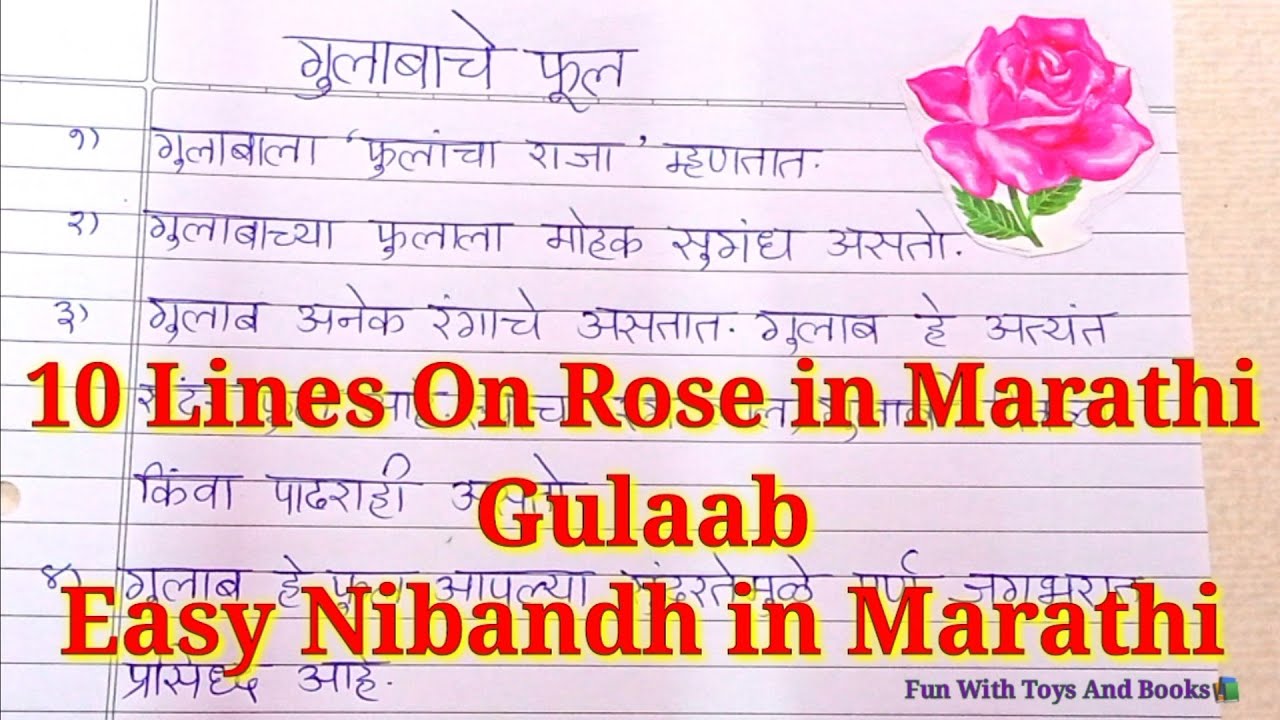 गुलाबाचे फूल
१) गुलाबाला 'फुलांचा राजा' म्हणतात.
२) गुलाबाच्या फुलाला मोहक सुगंध असतो.
३) गुलाब अनेक रंगाचे असतात. गुलाब हे अत्यंत
10 Lines On Rose in Marathi
किंवा पाढराही
Gulaab
४) गुलाब हे फुल आपल्या जगभरात
Easy Nibandh in Marathi
प्रसिध्द आहे.
Fun With Toys And Books